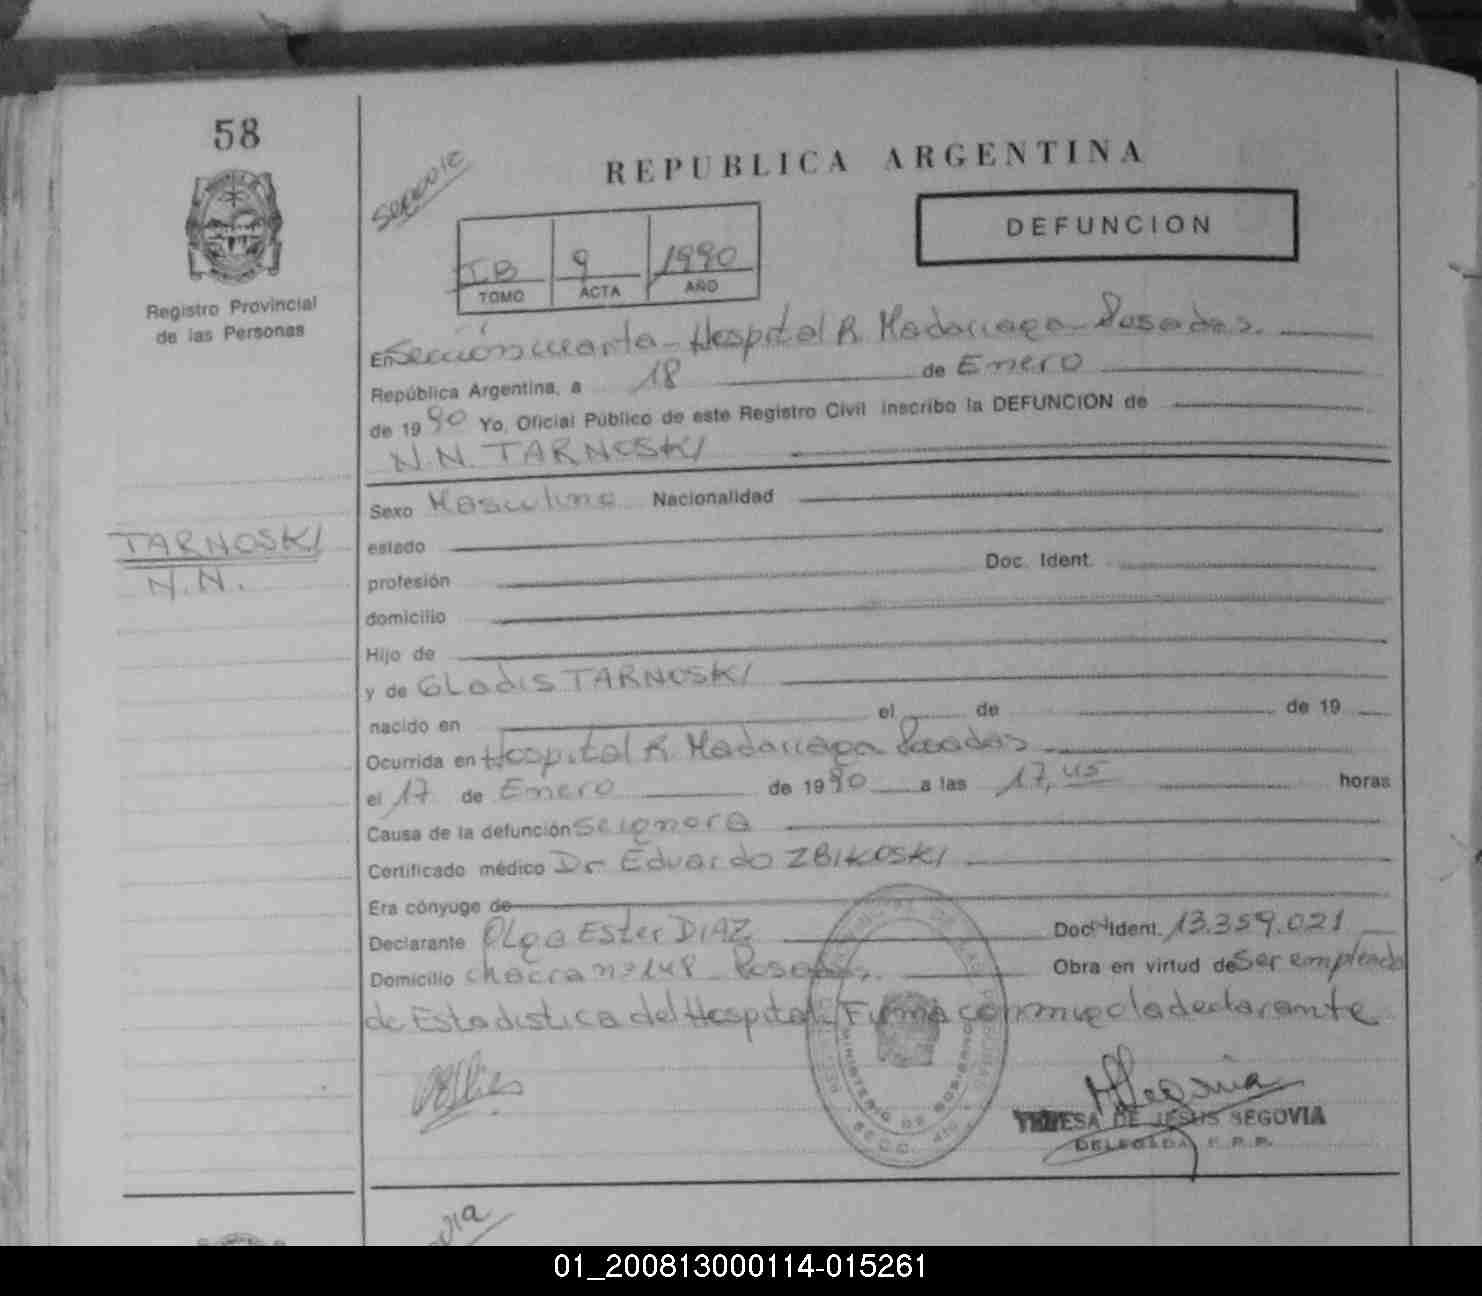 58
Registro Provincial
de las Personas
TARNOSKI
N.N.
REPUBLICA ARGENTINA
DEFUNCION
IB 9 1990
TOMO ACTA AÑO
En Sección cuarta - Hospital R. Madariaga - Posadas.
República Argentina, a 18 de Enero
de 1990 Yo, Oficial Público de este Registro Civil inscribo la DEFUNCION de
N.N. TARNOSKI
Sexo Masculino Nacionalidad
estado
profesión Doc. Ident.
domicilio
Hijo de
y de Gladis TARNOSKI
nacido en el de de 19
Ocurrida en Hospital R. Madariaga Posadas
el 17 de Enero de 1990 a las 17,45 horas
Causa de la defunción se ignora
Certificado médico Dr. Eduardo ZBIKOSKI
Era cónyuge de
Declarante Olga Ester DIAZ Doc. Ident. 13.359.021
Domicilio chacra nº 148 Posadas. Obra en virtud de Ser empleada
de Estadistica del Hospital. Firma conmigo la declarante
MINISTERIO DE GOBIERNO
TERESA DE JESUS SEGOVIA
DELEGADA R.P.P.
01_200813000114-015261